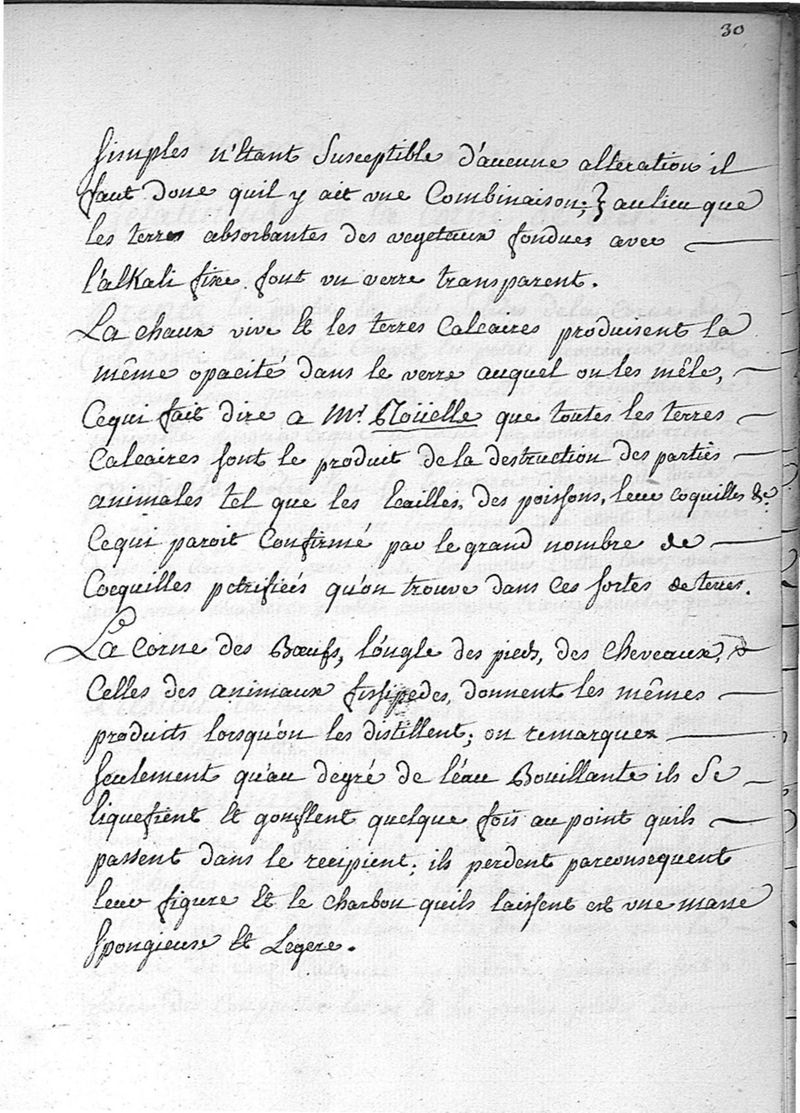 30
simples n'étant Susceptible d'aucune alteration il
faut donc quil y ait une Combinaison; au lieu que
les terres absorbantes des vegetaux fondues avec
l'alKali fixe font un verre transparent.
La chaux vive et les terres Calcaires produisent la
même opacité dans le verre auquel on les mêle,
Cequi fait dire a Mr. Roüelle que toutes les terres
Calcaires sont le produit de la destruction des parties
animales tel que les Ecailles, des poissons, leur coquilles &c.
Cequi paroit Confirmé par le grand nombre de
Cocquilles petrifieés qu'on trouve dans ces sortes de terres.
La Corne des Bœufs, l'ongle des pieds, des Cheveaux, &
Celles des animaux fissipedes, donnent les mêmes
produits lorsqu'on les distillent; on remarque
seulement qu'au degré de l'éau Bouillante ils se
liquefient et gonflent quelque fois au point quils
passent dans le recipient; ils perdent parconsequent
leur figure et le charbon quils laissent est une masse
spongieuse et Legere.